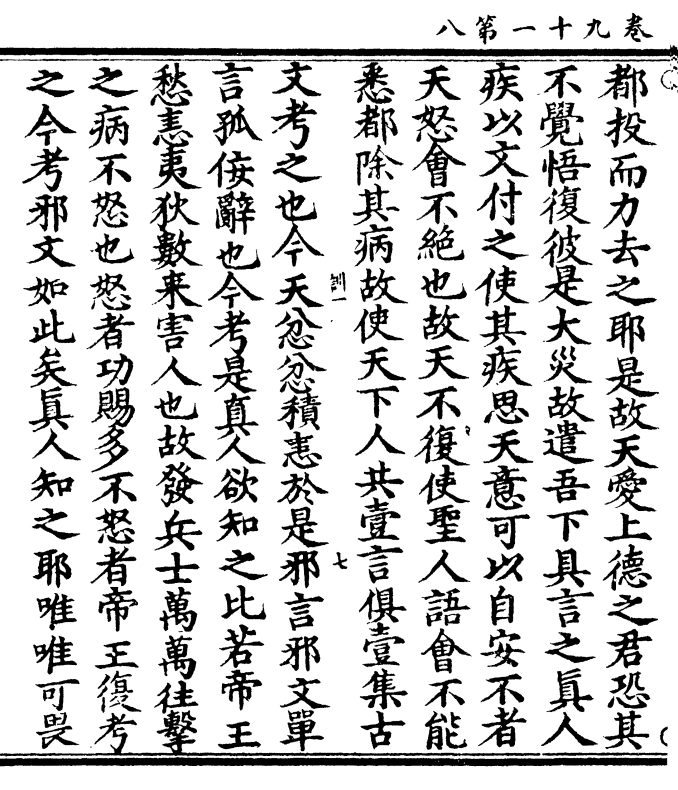 卷九十一第八
都投而力去之耶是故天愛上德之君恐其
不覺悟復彼是大災故遣吾下具言之眞人
疾以文付之使其疾思天意可以自安不者
天怒會不絶也故天不復使聖人語會不能
悉都除其病故使天下人共壹言俱壹集古
訓一 七
文考之也今天忿忿積恚於是邪言邪文單
言孤佞辭也今考是真人欲知之比若帝王
愁恚夷狄數来害人也故發兵士萬萬往擊
之病不怒也怒者功賜多不怒者帝王復考
之今考邪文如此矣眞人知之耶唯唯可畏